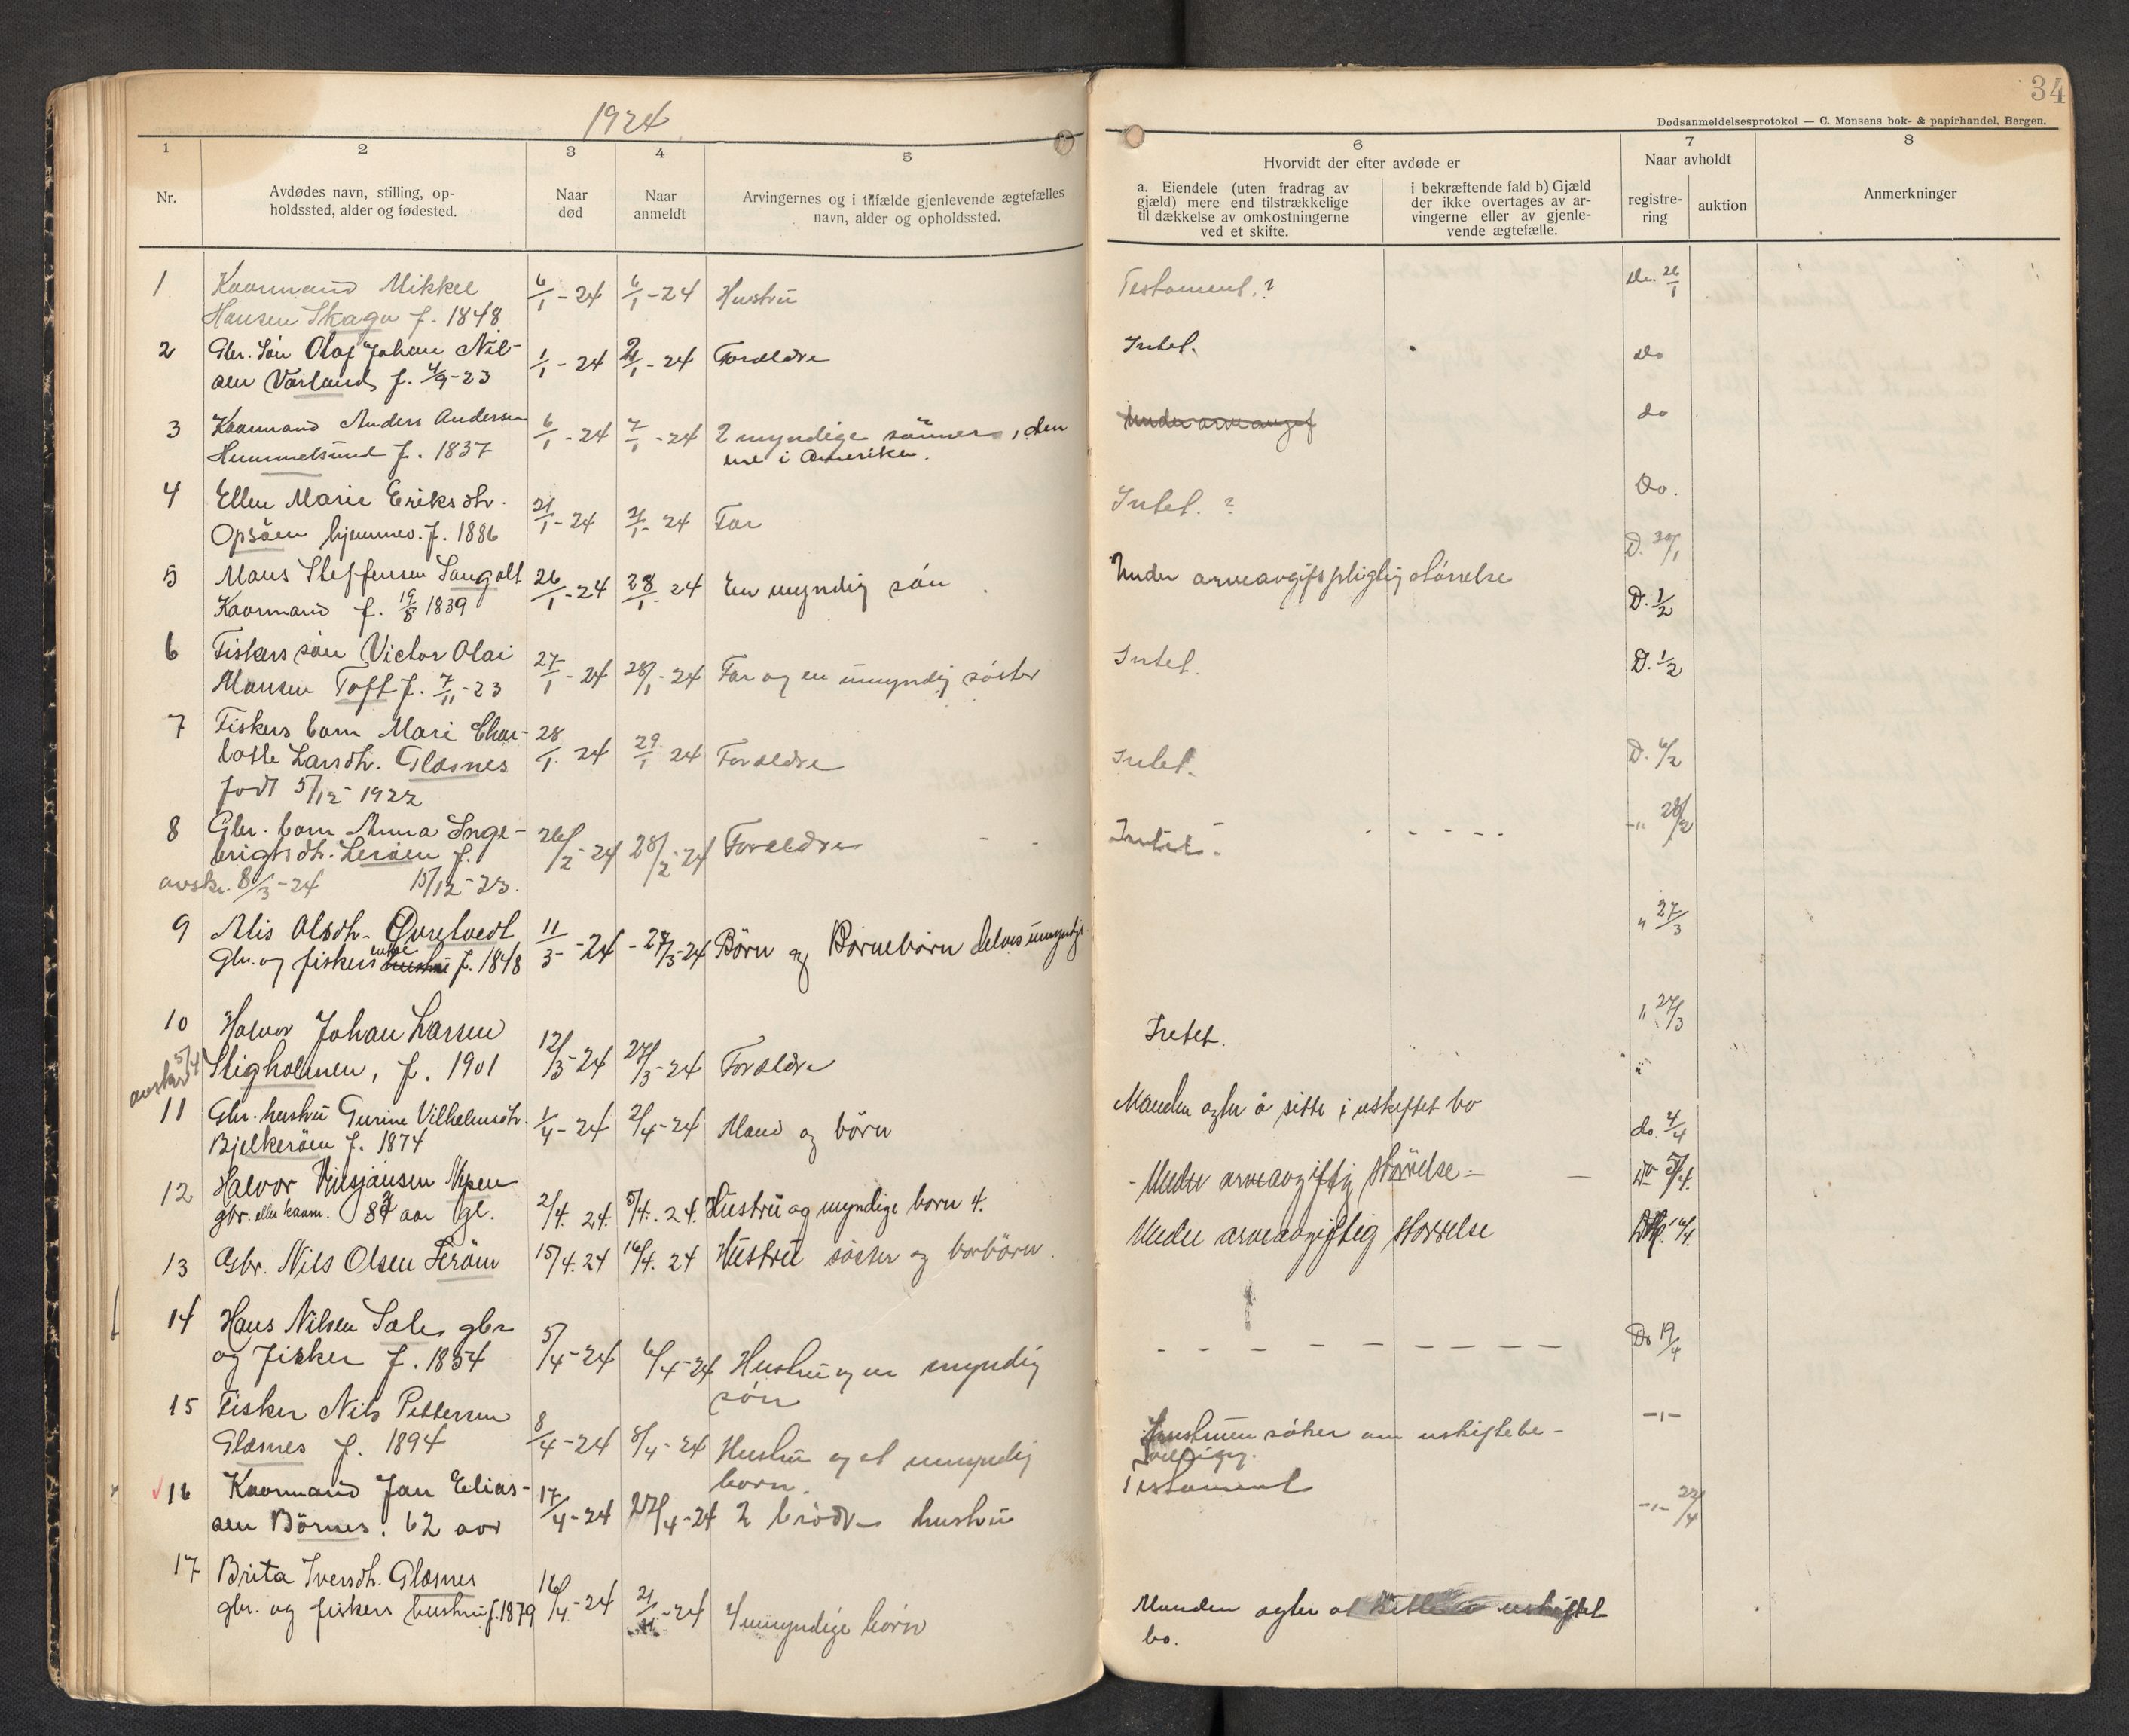 1924
34
Dødsanmeldelsesprotokol — C. Monsens bok- & papirhandel, Bergen.
1 2 3 4 5 6 7 8
Nr.
Avdødes navn, stilling, op-
holdssted, alder og fødested.
Naar
død
Naar
anmeldt
Arvingernes og i tilfælde gjenlevende ægtefælles
navn, alder og opholdssted.
Hvorvidt der efter avdøde er
a. Eiendele (uten fradrag av
gjæld) mere end tilstrækkelige
til dækkelse av omkostningerne
ved et skifte.
i bekræftende fald b) Gjæld
der ikke overtages av ar-
vingerne eller av gjenle-
vende ægtefælle.
Naar avholdt
registre-
ring
auktion
Anmerkninger
1 Kaarmand Mikkel 6/1-24 6/1-24 Hustru Testament.? 26/1
Hansen Skaga f. 1848
2 Gbr. søn Olaf Johan Nil- 1/1-24 2/1-24 Forældre Intet. do
sen Varland f. 4/9-23
3 Kaarmand Anders Andersen 6/1-24 7/1-24 2 myndige sønner, den do
Hummelsund f. 1837 ene i Amerika.
4 Ellen Marie Eriksdtr. 21/1-24 21/1-24 Far Intet. ? Do.
Opsøen hjemmev. f. 1886 D. 30/1
5 Mons Steffensen Sangolt 26/1-24 28/1-24 En myndig søn Under arveavgifspligtig størrelse D. 1/2
Kaarmand f. 19/8 1839
6 Fiskers søn Victor Olai 27/1-24 28/1-24 Far og en umyndig søster Intet. D. 1/2
Monsen Toft f. 7/11-23
7 Fiskers barn Mari Char- 28/1-24 29/1-24 Forældre Intet. D. 6/2
lotte Larsdtr. Glæsnes
født 5/12-1922
8 Gbr. barn Anna Inge- 26/2-24 28/2-24 Forældre Intet. -"- 28/2
brigtsdtr. Lerøen f.
avskr. 8/3-24 15/12-23.
9 Alis Olsdtr. Øvretvedt 11/3-24 - 27/3-24 Børn og Børnebørn delvis umyndige " 27/3
Gbr. og fiskers enke hustru f. 1848
10 Halvor Johan Larsen 12/3-24 27/3-24 Forældre Intet. " 27/3
Stigholmen, f. 1901
avskr 5/4
11 Gbr. hustru Gurine Vilhelmsdtr. 1/4-24 2/4-24 Mand og børn Manden agter å sitte i uskiftet bo do. 4/4
Bjelkerøen f. 1874
12 Halvor Nipen 2/4. 24. 5/4. 24. Hustru og myndige born 4. Under arveavgiftig størrelse Do 5/4.
gbr. eller kaarm. aar gl.
13 Gbr. Nils Olsen Lerøen 15/4. 24 16/4. 24 Hustru søster og borbørn. Under arveavgiftig størrelse 16/4.
14 Hans Nilsen Sæle gbr 5/4-24 6/4-24 Hustru og en myndig Do 19/4
og fisker f. 1854 søn
15 Fisker Nils Pettersen 8/4-24 8/4-24 Hustru og et umyndig Hustruen søker om uskiftebe- -"-
Glæsnes f. 1894 barn. villing.
16 Kaarmand Jan Elias- 17/4-24 22/4-24 2 brødre hustru Testament -"- 22/4
sen Børnes. 62 aar
17 Brita Iversdtr. Glæsnes 16/4-24 21/4-24 4 umyndige børn Manden agter at sitte i uskiftet
gbr. og fiskers hustru f. 1879 bo.